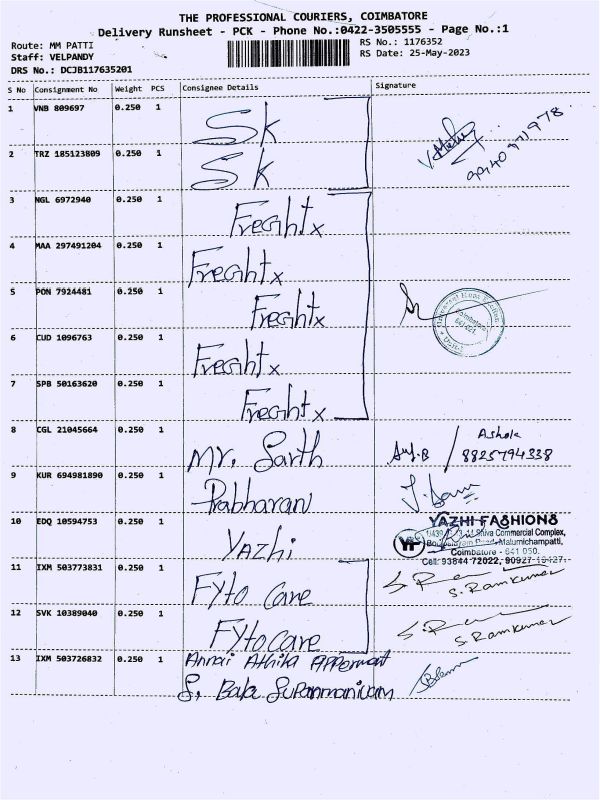 THE PROFESSIONAL COURIERS, COIMBATORE
Delivery Runsheet - PCK - Phone No.:0422-3505555 - Page No.:1
Route: MM PATTI
RS No.: 1176352
Staff: VELPANDY
RS Date: 25-May-2023
DRS No.: DCJB117635201
S No Consignment No Weight PCS Consignee Details Signature
1 VNB 809697 0.250 1 Sk
2 TRZ 185123809 0.250 1 Sk
3 NGL 6972940 0.250 1 Freghtx
4 MAA 297491204 0.250 1 Freghtx
5 PON 7924481 0.250 1 Freghtx
Coimbatore
6 CUD 1096763 0.250 1 Freghtx
7 SPB 50163620 0.250 1 Freghtx
8 CGL 21045664 0.250 1 Mr. Sarth Ashok
8825794338
9 KUR 694981890 0.250 1 Prabharan
10 EDQ 10594753 0.250 1 Yazhi YAZHI FASHIONS
Shiva Commercial Complex,
Malumichampatti,
Coimbatore - 641 050.
Cell: 93844 72022, 90927 19427
11 IXM 503773831 0.250 1 Fyto Care S. Ramkumar
12 SVK 10389040 0.250 1 Fyto Care S. Ramkumar
13 IXM 503726832 0.250 1 Annai Athika Apperment
S. Bala Supanmaniyam